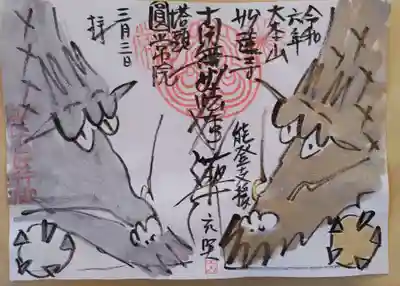 令和
六年
大本山
妙蓮寺
能登支援
南無妙法蓮華
塔頭
圓常院
三月三日
拝